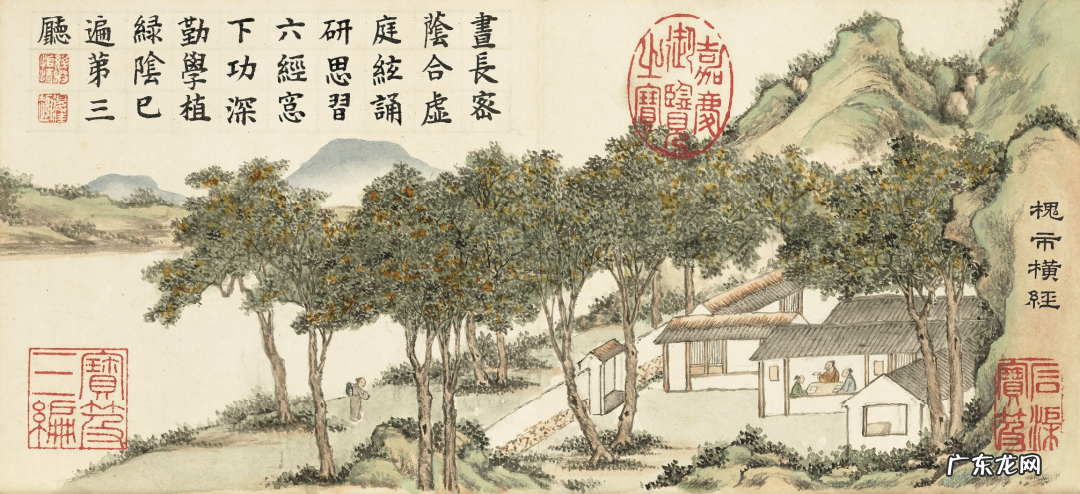 晝長密
蔭合虛
庭絃誦
研思習
六經窓
下功深
勤學植
緑陰已
遍第三
廳
嘉慶
御覽
之寶
槐市横經
石渠
寶笈
寶笈
三編
广东龙网